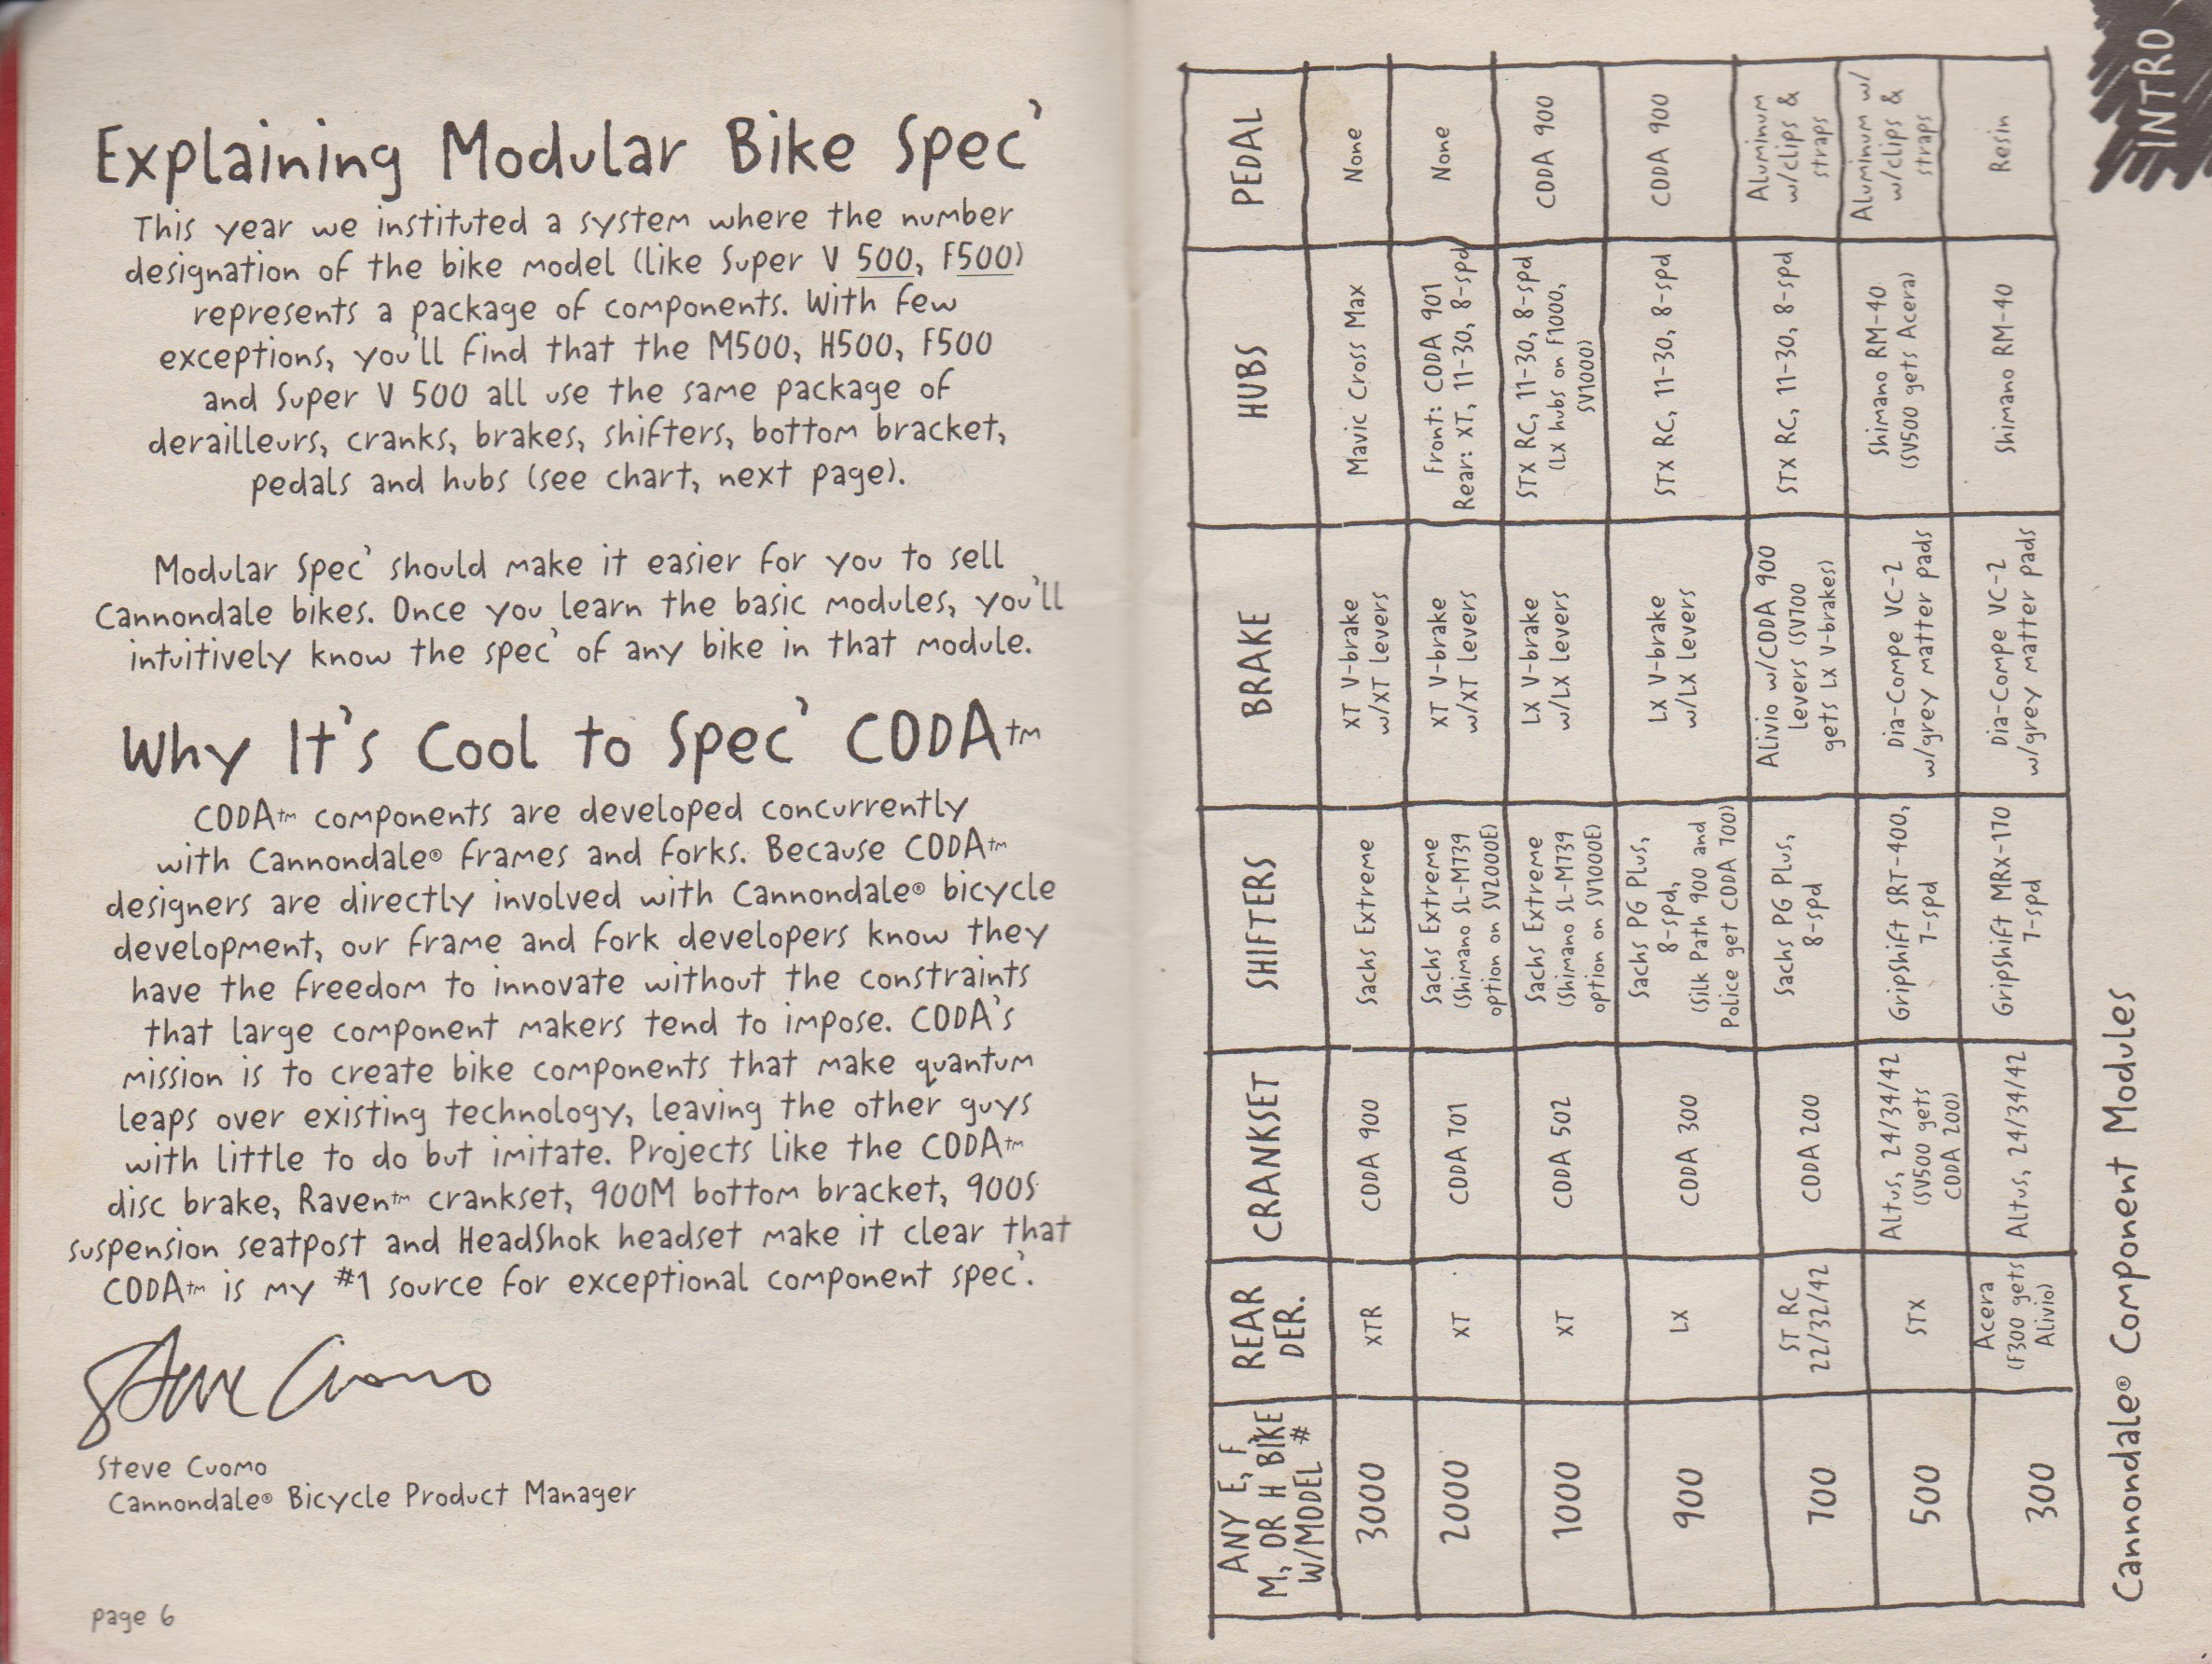 Explaining Modular Bike Spec'
This year we instituted a system where the number
designation of the bike model (like Super V 500, F500)
represents a package of components. With few
exceptions, you'll find that the M500, H500, F500
and Super V 500 all use the same package of
derailleurs, cranks, brakes, shifters, bottom bracket,
pedals and hubs (see chart, next page).
Modular Spec' should make it easier for you to sell
Cannondale bikes. Once you learn the basic modules, you'll
intuitively know the spec' of any bike in that module.
Why It's Cool to Spec' CODA™
CODA™ components are developed concurrently
with Cannondale® frames and forks. Because CODA™
designers are directly involved with Cannondale® bicycle
development, our frame and fork developers know they
have the freedom to innovate without the constraints
that large component makers tend to impose. CODA's
mission is to create bike components that make quantum
leaps over existing technology, leaving the other guys
with little to do but imitate. Projects like the CODA™
disc brake, Raven™ crankset, 900M bottom bracket, 900S
suspension seatpost and HeadShok headset make it clear that
CODA™ is my #1 source for exceptional component spec'.
Steve Cuomo
Steve Cuomo
Cannondale® Bicycle Product Manager
page 6
INTRO
ANY E, F
M, OR H BIKE
W/MODEL #
REAR
DER.
CRANKSET
SHIFTERS
BRAKE
HUBS
PEDAL
3000
XTR
CODA 900
Sachs Extreme
XT V-brake
w/XT levers
Mavic Cross Max
None
2000
XT
CODA 701
Sachs Extreme
(Shimano SL-MT39
option on SV2000E)
XT V-brake
w/XT levers
Front: CODA 901
Rear: XT, 11-30, 8-spd
None
1000
XT
CODA 502
Sachs Extreme
(Shimano SL-MT39
option on SV1000E)
LX V-brake
w/LX levers
STX RC, 11-30, 8-spd
(LX hubs on F1000,
SV1000)
CODA 900
900
LX
CODA 300
Sachs PG Plus,
8-spd,
(Silk Path 900 and
Police get CODA 700)
LX V-brake
w/LX levers
STX RC, 11-30, 8-spd
CODA 900
700
ST RC
22/32/42
CODA 200
Sachs PG Plus,
8-spd
Alivio w/CODA 900
levers (SV700
gets LX V-brakes)
STX RC, 11-30, 8-spd
Aluminum
w/clips &
straps
500
STX
Altus, 24/34/42
(SV500 gets
CODA 200)
GripShift SRT-400,
7-spd
Dia-Compe VC-2
w/grey matter pads
Shimano RM-40
(SV500 gets Acera)
Aluminum w/
w/clips &
straps
300
Acera
(F300 gets
Alivio)
Altus, 24/34/42
GripShift MRX-170
7-spd
Dia-Compe VC-2
w/grey matter pads
Shimano RM-40
Resin
Cannondale® Component Modules